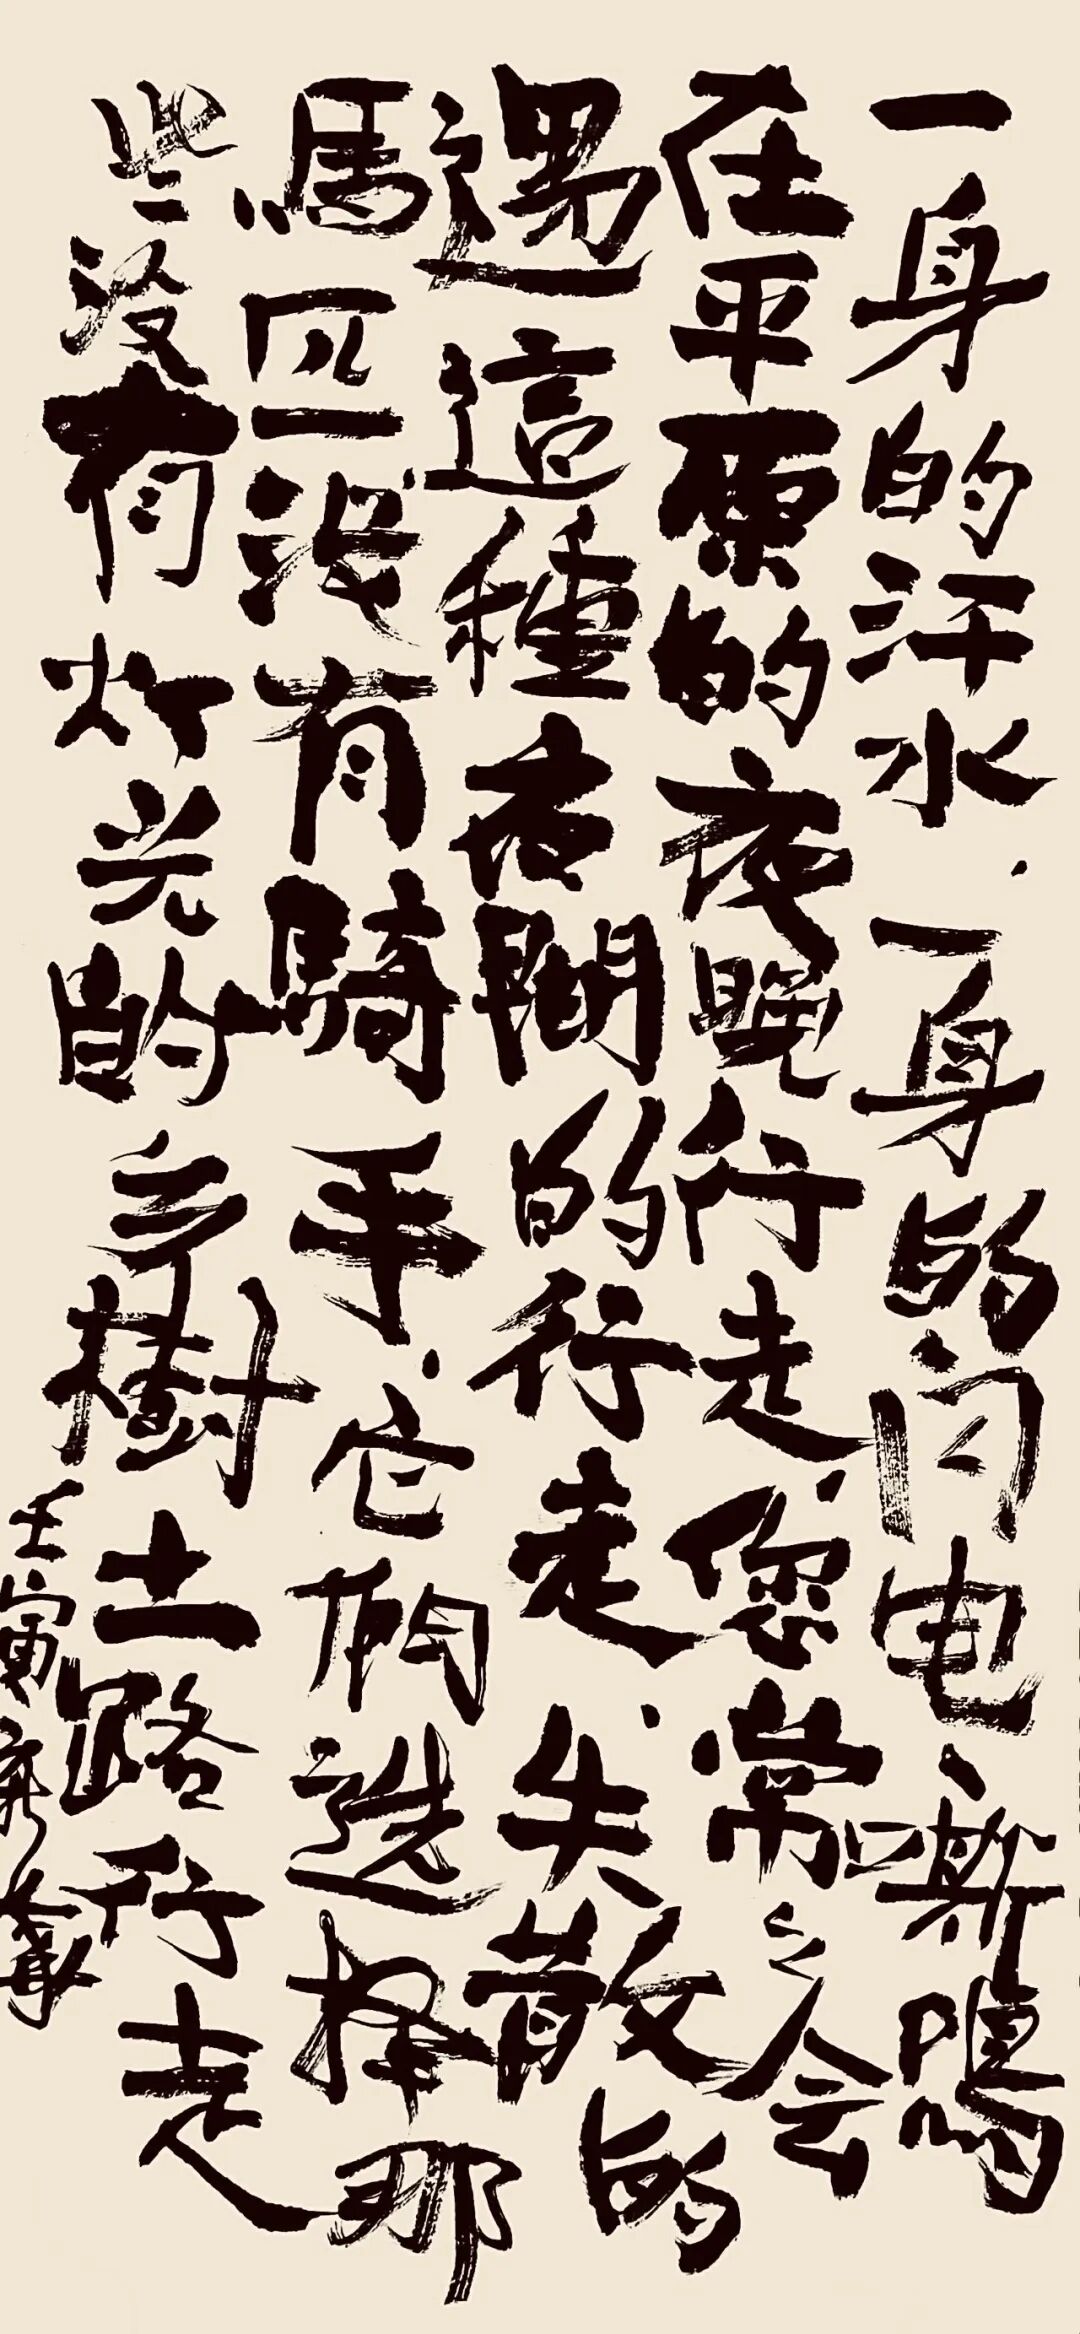 一身的汗水.一身的闪电、嘶鳴
在平原的夜晚行走.您常常会
遇這種夜間的行走.失散的
馬匹没有騎手.它们选择那
些没有灯光的
樹土路行走
壬寅